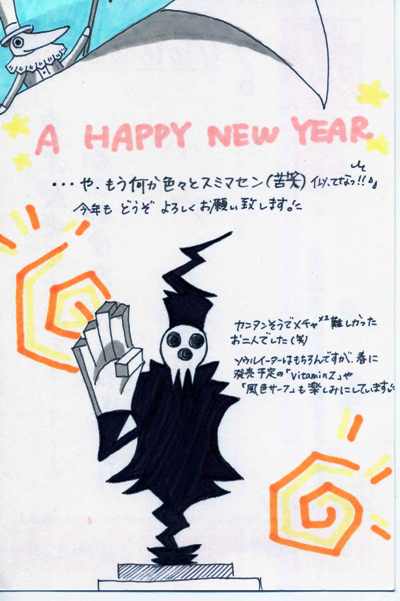 A HAPPY NEW YEAR
・・・や、もう何か色々とスミマセン(苦笑) 似てなっ!!
今年も どうぞ よろしくお願い致します。
カンタンそうでメチャ×2難しかった
お二人でした(笑)
ソウルイーターはもちろんですが、春に
発売予定の「VitaminZ」や
「風色サーフ」も楽しみにしています